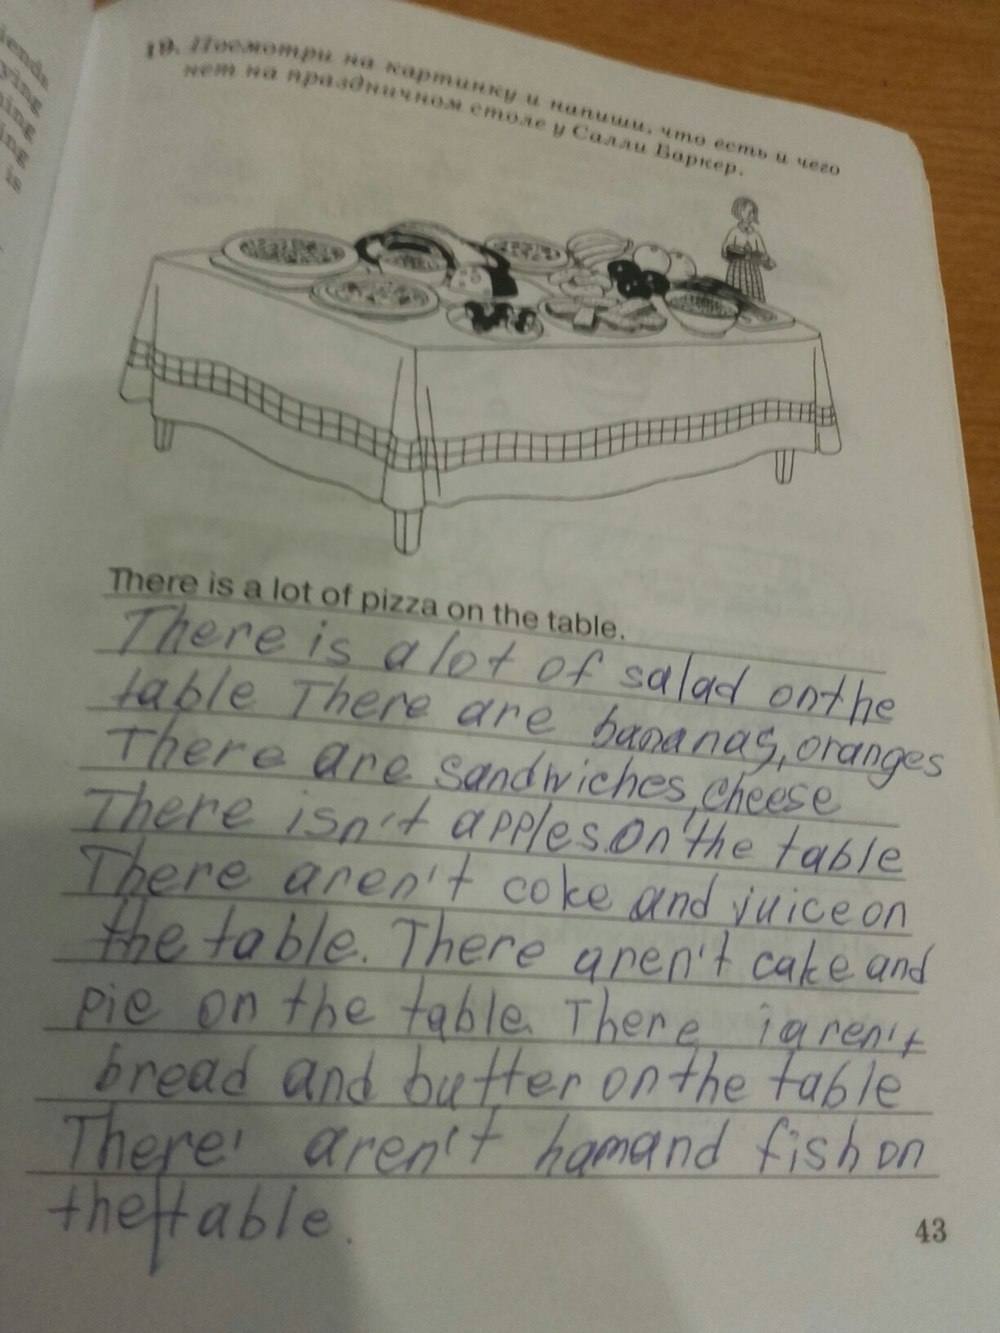 19. Посмотри на картинку и напиши, что есть и чего
нет на праздничном столе у Салли Баркер.
There is a lot of pizza on the table.
There is a lot of salad on the
table There are bananas, oranges
There are sandwiches, cheese
There isn't apples on the table
There aren't coke and juice on
the table. There aren't cake and
pie on the table. There iaren't
bread and butter on the table
There' aren't ham and fish on
the table.
43